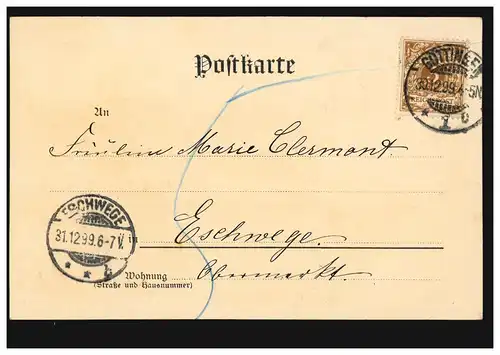 Postkarte
GÖTTINGEN
30.12.99.4-5N
* 1 c
An
Fräulein Marie Clermont
ESCHWEGE
31.12.99.6-7V.
* * b
in
Eschwege.
Obermarkt.
Wohnung
(Straße und Hausnummer)